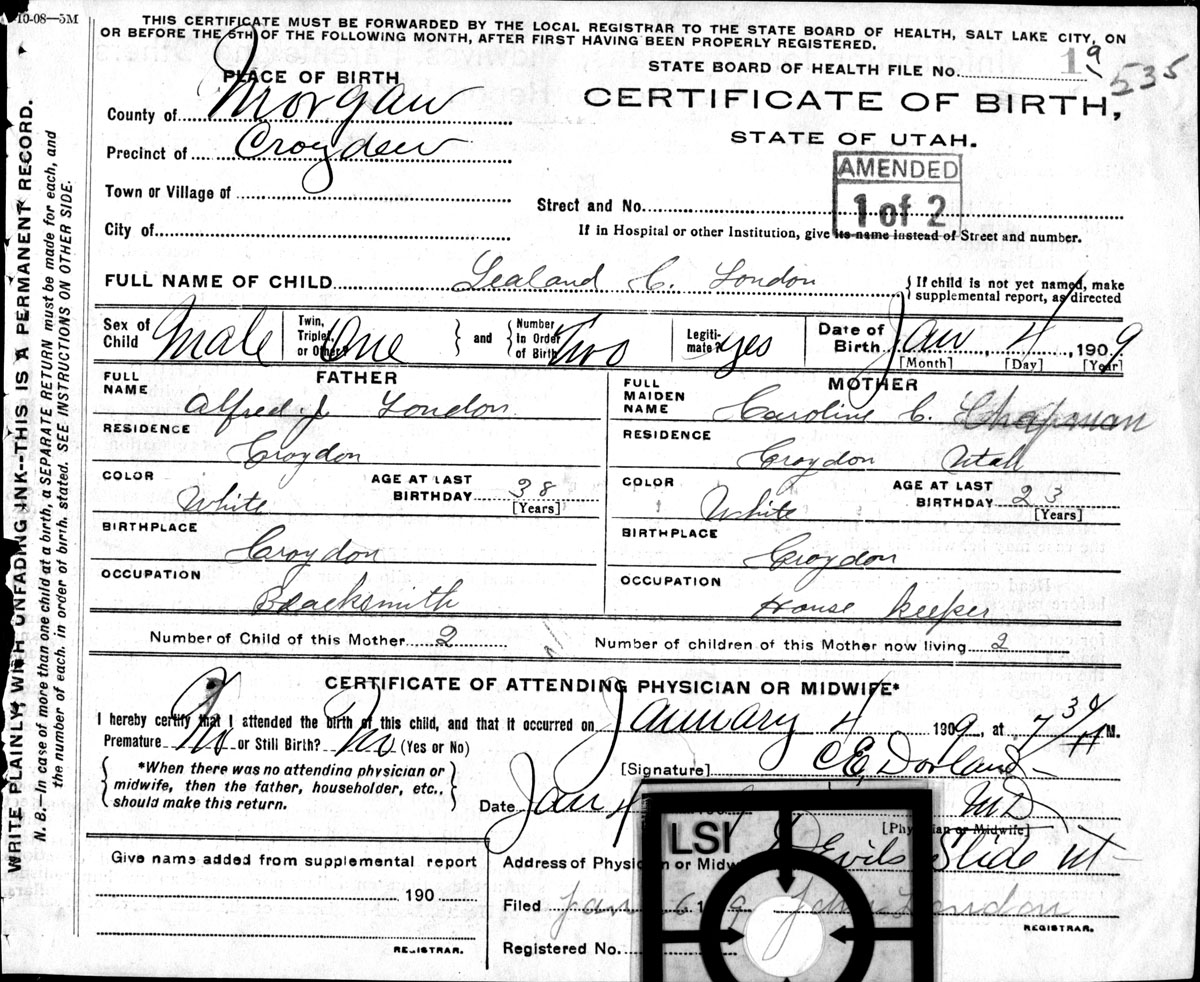 10-08—5M
THIS CERTIFICATE MUST BE FORWARDED BY THE LOCAL REGISTRAR TO THE STATE BOARD OF HEALTH, SALT LAKE CITY, ON
OR BEFORE THE 5TH OF THE FOLLOWING MONTH, AFTER FIRST HAVING BEEN PROPERLY REGISTERED.
STATE BOARD OF HEALTH FILE NO. 19 535
PLACE OF BIRTH
CERTIFICATE OF BIRTH,
STATE OF UTAH.
County of Morgan
Precinct of Croyden
AMENDED
1 of 2
Town or Village of
Street and No.
City of
If in Hospital or other Institution, give its name instead of Street and number.
FULL NAME OF CHILD Lealand C. London
If child is not yet named, make
supplemental report, as directed
Sex of Child Male Twin, Triplet, or Other? One and Number In Order of Birth Two Legitimate? yes Date of Birth Jan 4, 1909
[Month] [Day] [Year]
FATHER
FULL NAME Alfred J London
RESIDENCE Croydon
COLOR White AGE AT LAST BIRTHDAY 38 [Years]
BIRTHPLACE Croydon
OCCUPATION Blacksmith
MOTHER
FULL MAIDEN NAME Caroline C. Chapman
RESIDENCE Croydon Utah
COLOR White AGE AT LAST BIRTHDAY 23 [Years]
BIRTHPLACE Croydon
OCCUPATION House keeper
Number of Child of this Mother 2 Number of children of this Mother now living 2
CERTIFICATE OF ATTENDING PHYSICIAN OR MIDWIFE*
I hereby certify that I attended the birth of this child, and that it occurred on January 4 1909, at 7 30 A M.
Premature No or Still Birth? No (Yes or No)
*When there was no attending physician or
midwife, then the father, householder, etc.,
should make this return.
[Signature] C E, Dorland
Date Jan 4 MD
[Physician or Midwife]
Address of Physician or Midwife Devils Slide ut
Give name added from supplemental report
190
REGISTRAR.
Filed Jan 6 1909 John London
REGISTRAR.
Registered No.
LSI
WRITE PLAINLY, WITH UNFADING INK--THIS IS A PERMANENT RECORD.
N. B.—In case of more than one child at a birth, a SEPARATE RETURN must be made for each, and
the number of each, in order of birth, stated. SEE INSTRUCTIONS ON OTHER SIDE.